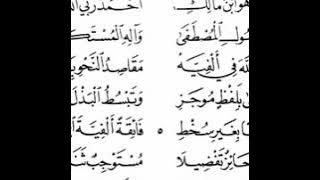 هُوَ ابْنُ مَالِكِ أَحْمَدُ رَبِّي الل
ـولِ الْمُصْطَفَى وَآلِهِ الْمُسْتَكـ
ـلَّهَ فِي أَلْفِيَّهْ مَقَاصِدُ النَّحْوِ
ـى بِلَفْظٍ مُوجَزِ وَتَبْسُطُ الْبَذْلَ
ـا بِغَيْرِ سُخْطِ ٥ فَائِقَةً أَلْفِيَّةَ ا
حَائِزٌ تَفْضِيلَا مُسْتَوْجِبٌ ثَنَا